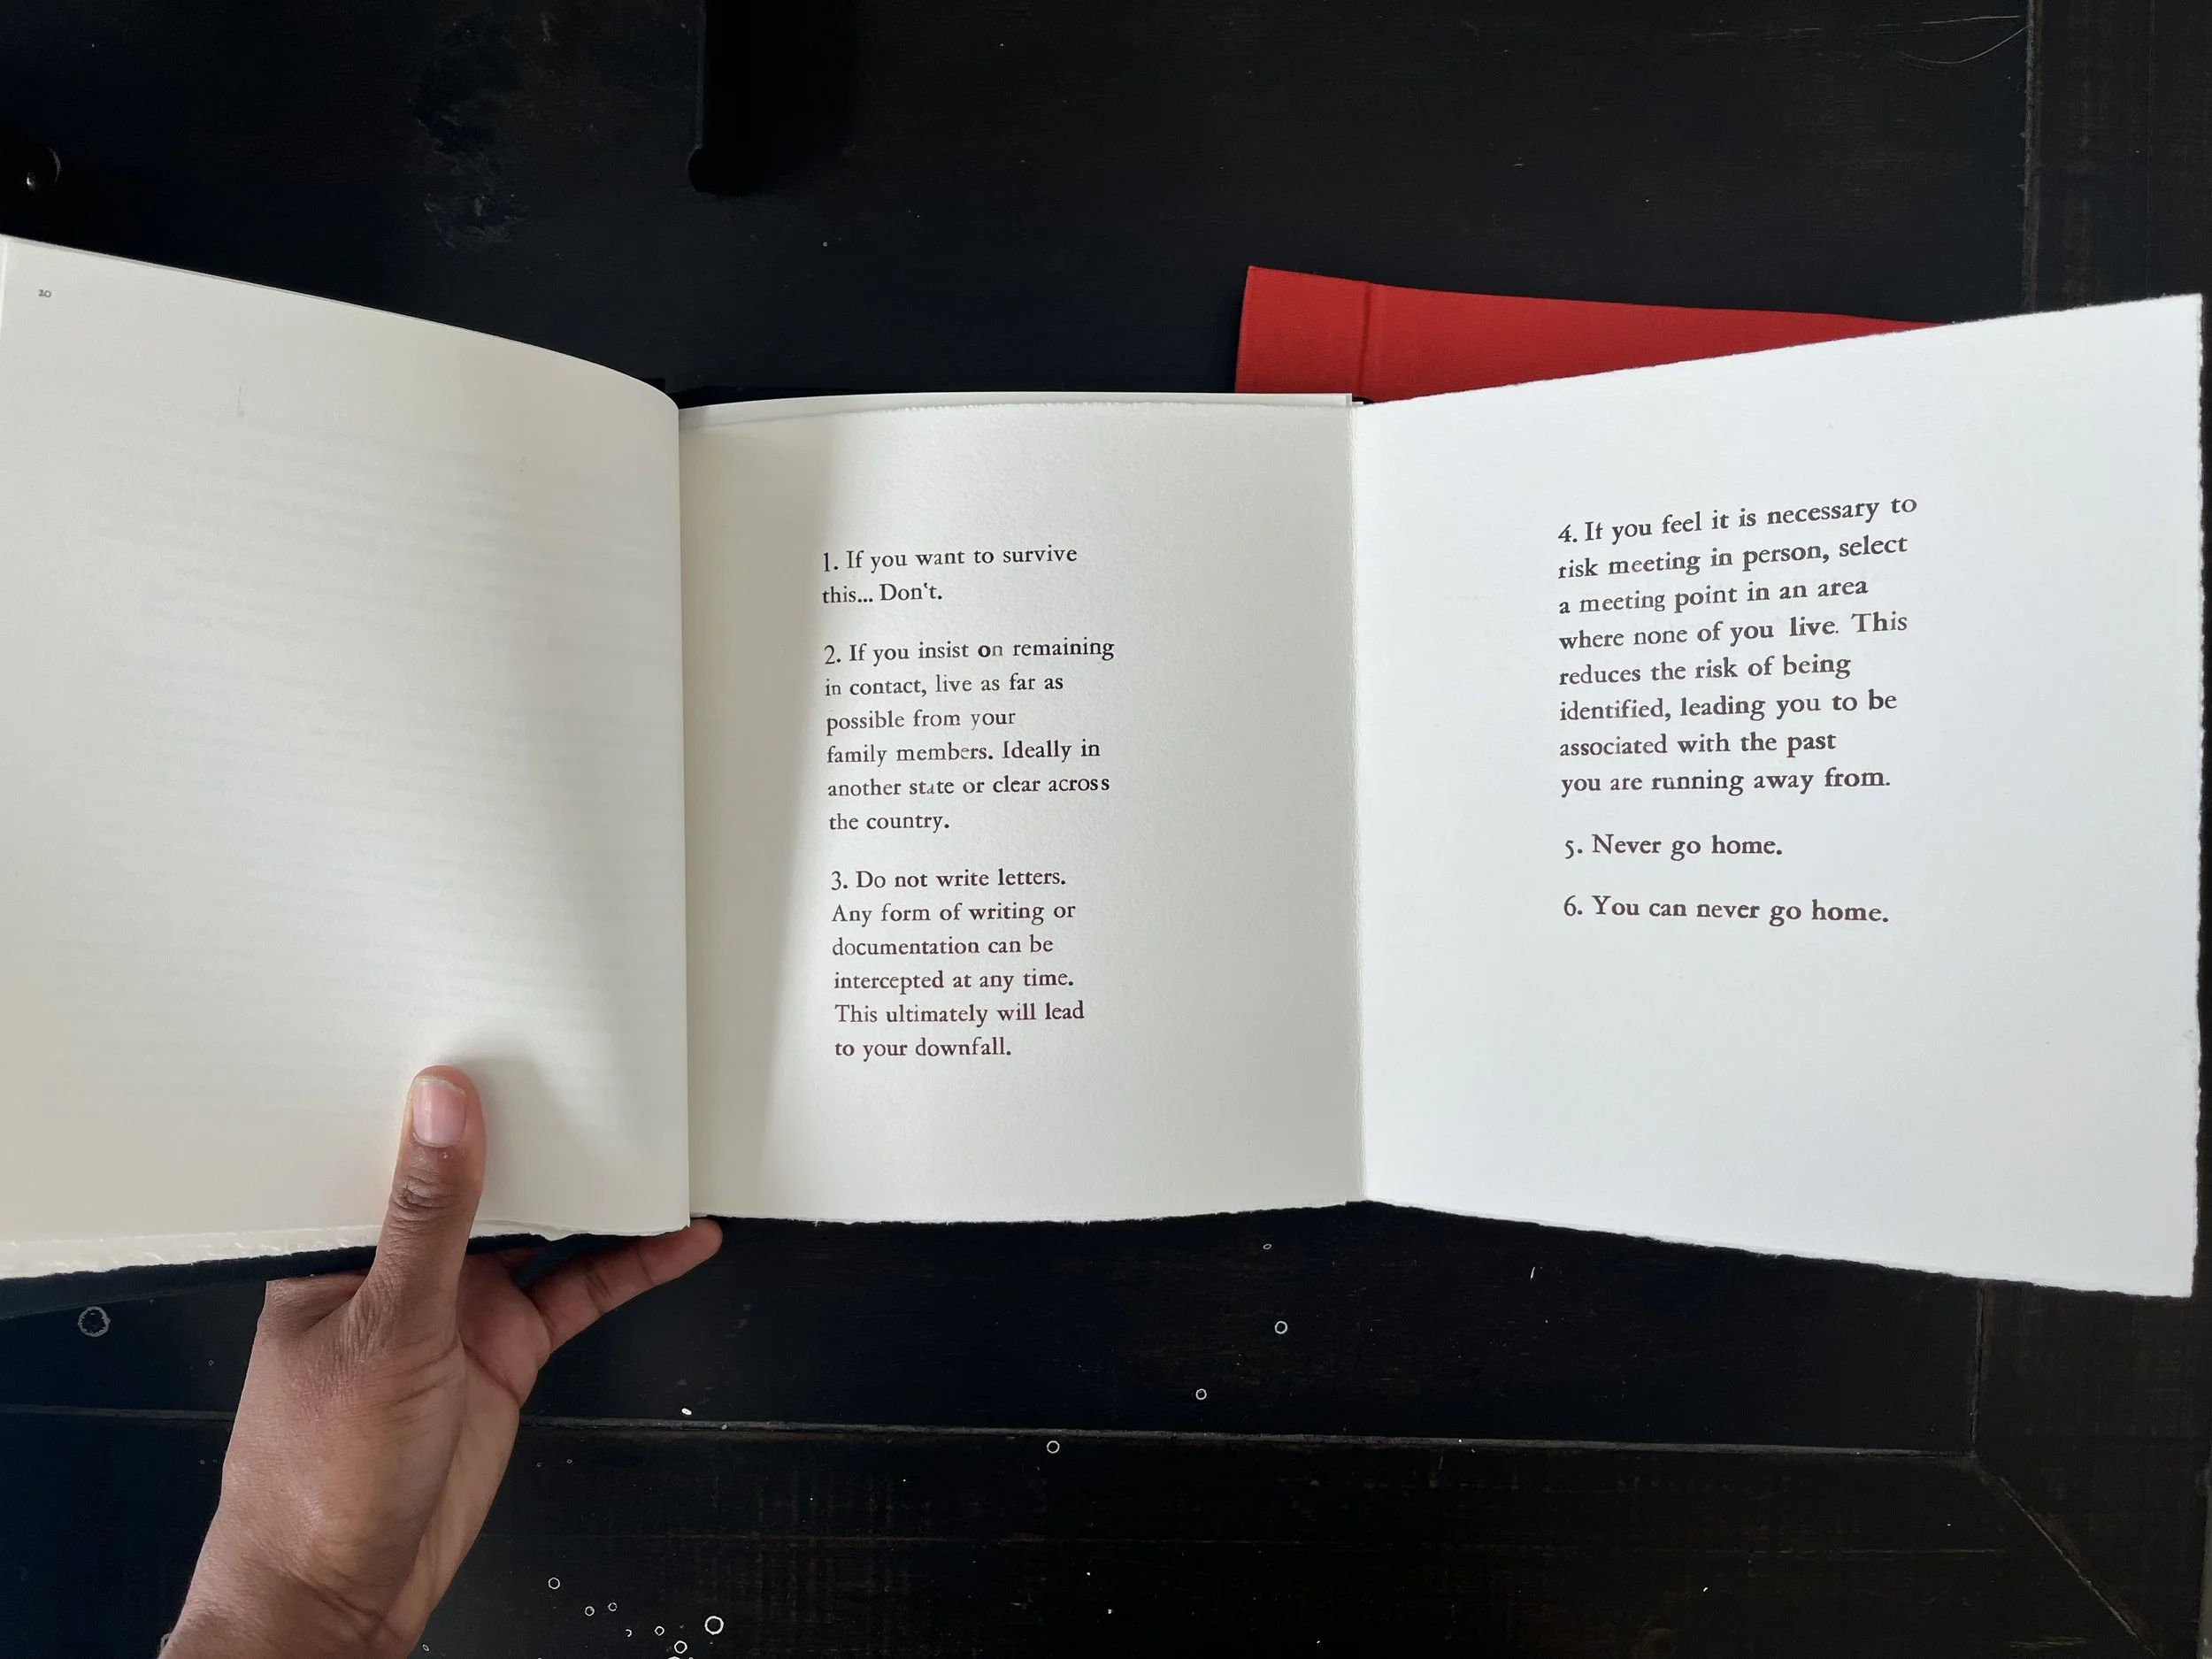 20
1. If you want to survive
this... Don't.
2. If you insist on remaining
in contact, live as far as
possible from your
family members. Ideally in
another state or clear across
the country.
3. Do not write letters.
Any form of writing or
documentation can be
intercepted at any time.
This ultimately will lead
to your downfall.
4. If you feel it is necessary to
risk meeting in person, select
a meeting point in an area
where none of you live. This
reduces the risk of being
identified, leading you to be
associated with the past
you are running away from.
5. Never go home.
6. You can never go home.